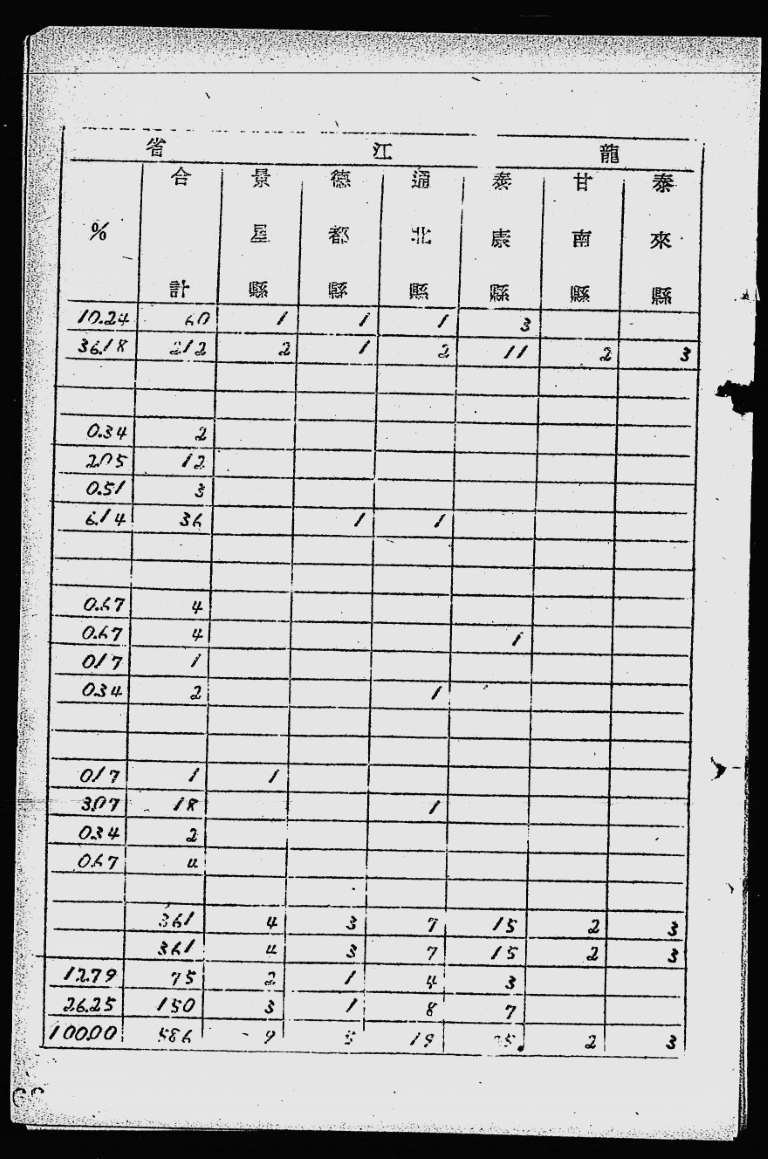 省 江 龍
% 合計 景星縣 德都縣 通北縣 泰康縣 甘南縣 泰來縣
10.24 60 1 1 1 3
36.18 212 2 1 2 11 2 3
0.34 2
2.05 12
0.51 3
6.14 36 1 1
0.67 4
0.67 4 1
0.17 1
0.34 2 1
0.17 1 1
3.07 18 1
0.34 2
0.67 4
361 4 3 7 15 2 3
361 4 3 7 15 2 3
12.79 75 2 1 4 3
26.25 150 3 1 8 7
100.00 586 9 5 19 25 2 3